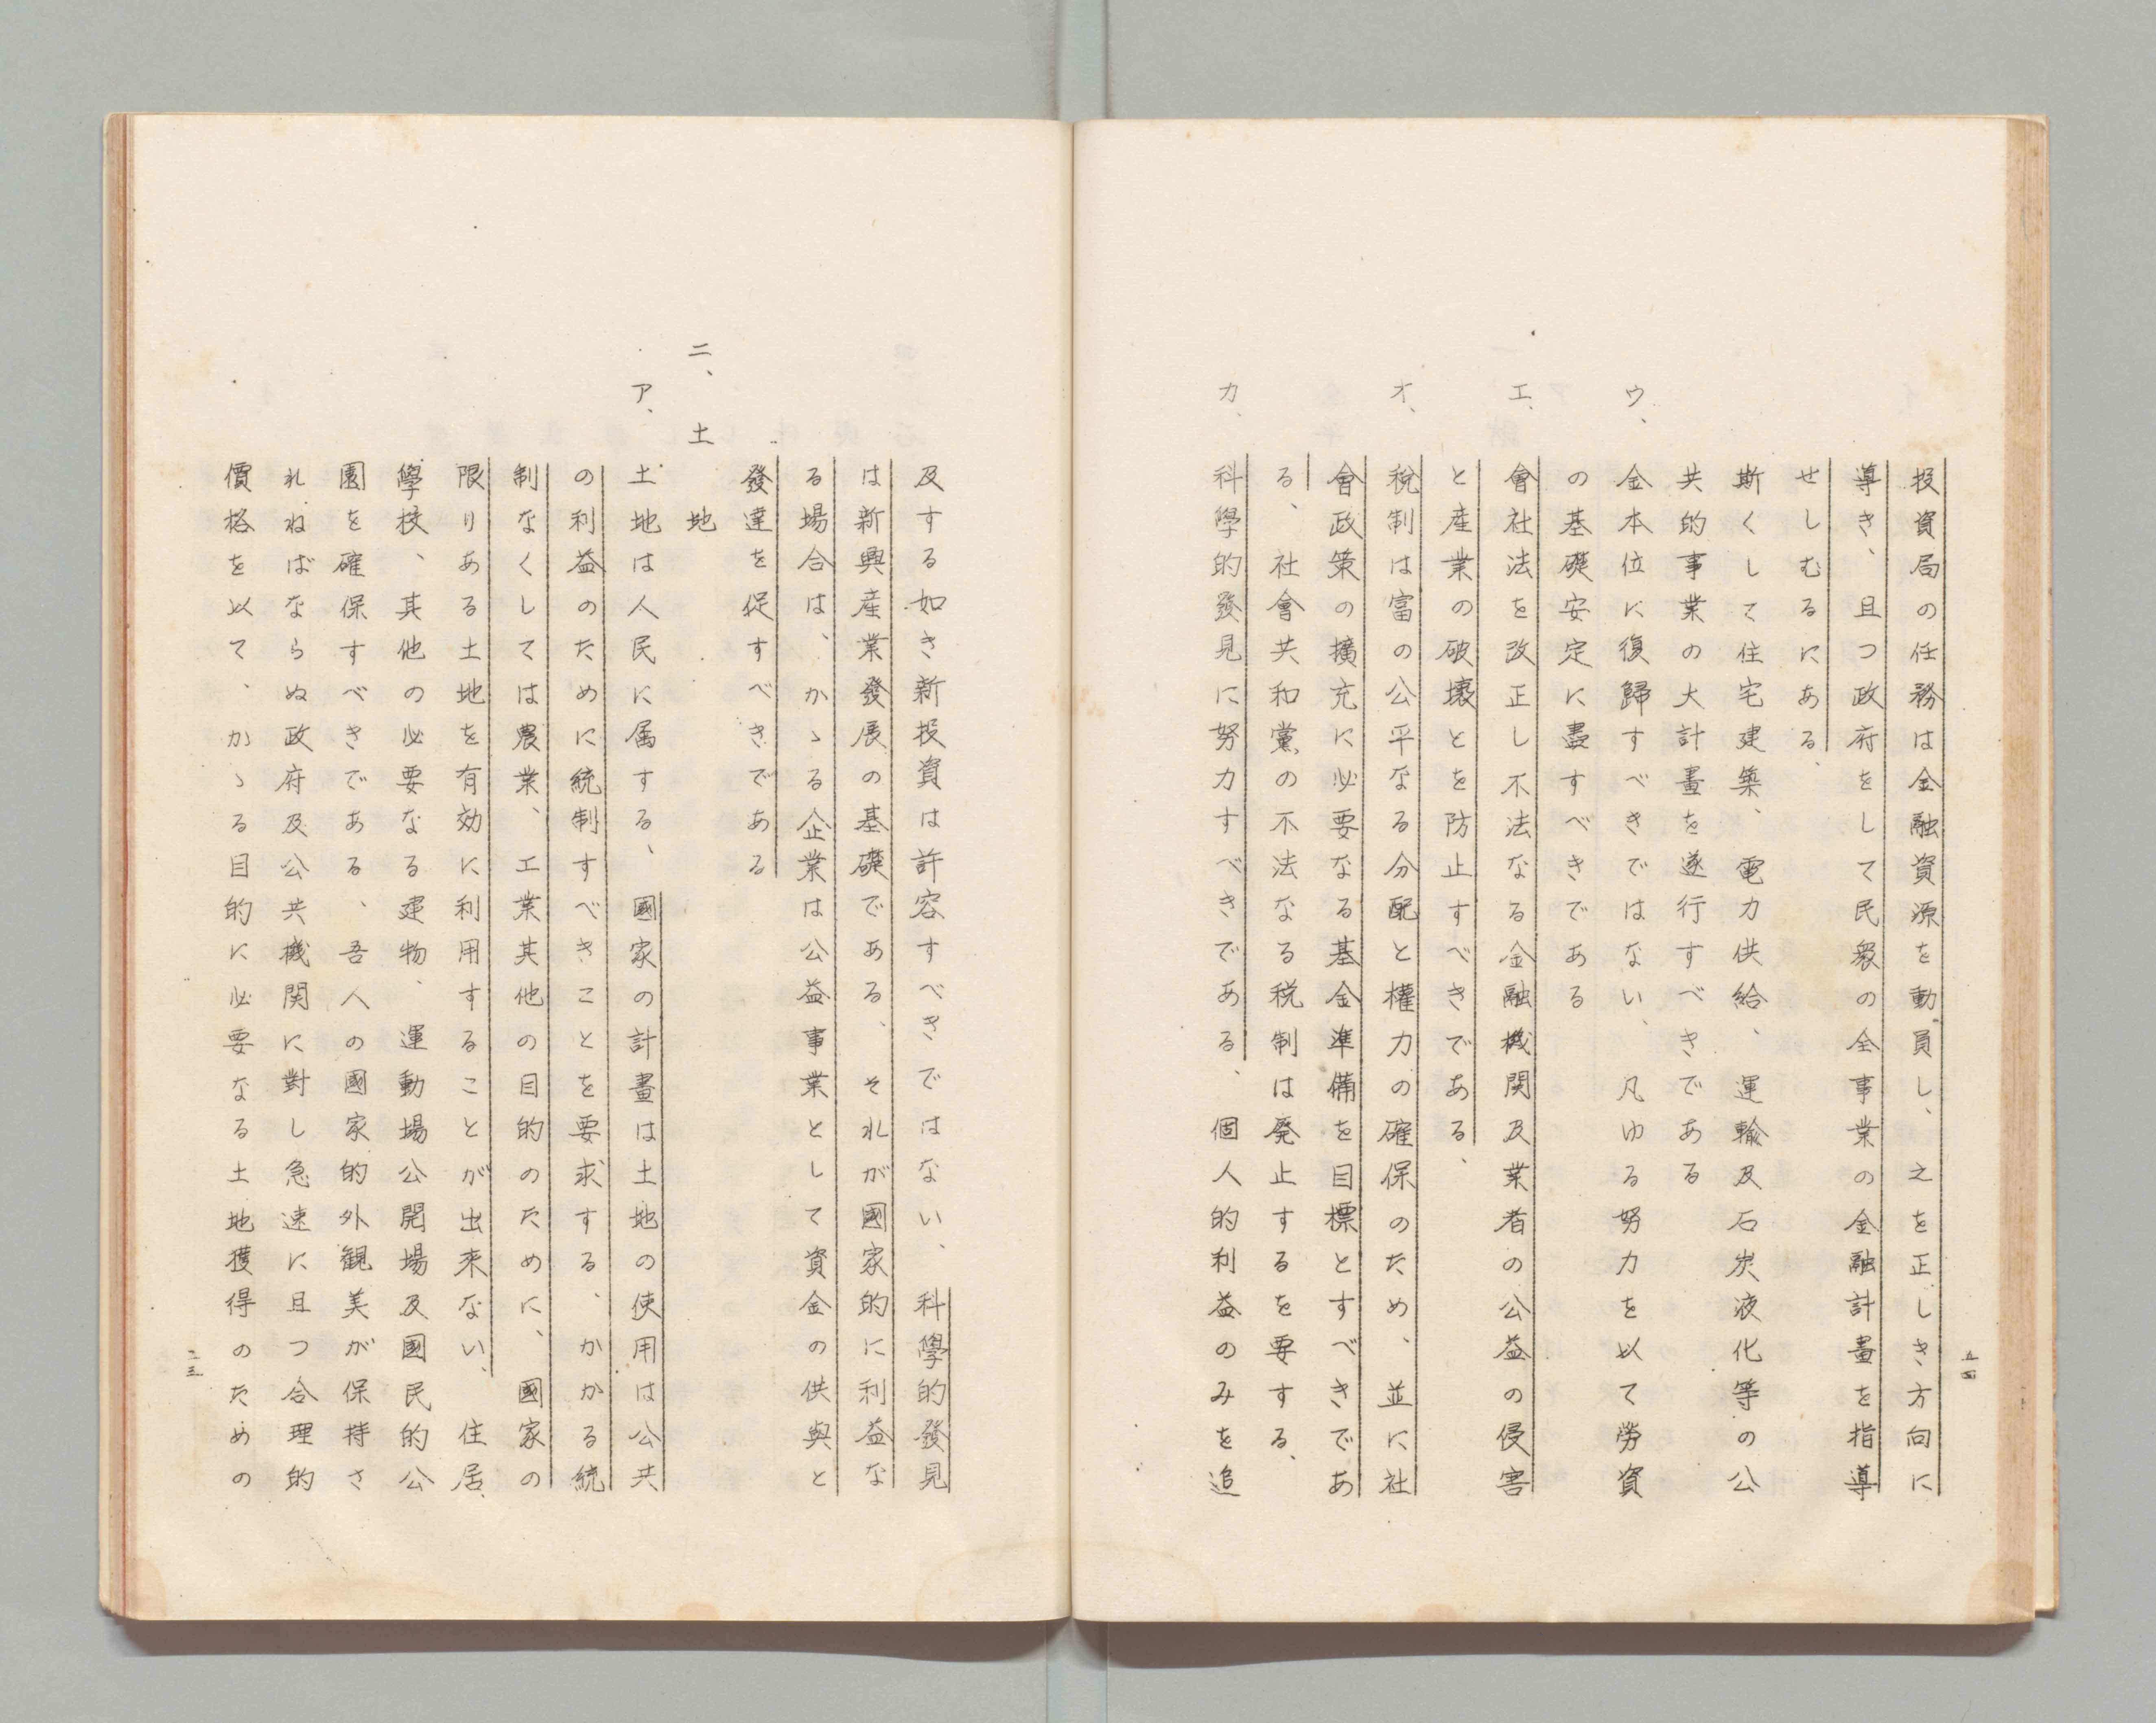 投資局の任務は金融資源を動員し、之を正しき方向に
導き、且つ政府をして民衆の全事業の金融計畫を指導
せしむるにある、
斯くして住宅建築、電力供給、運輸及石炭液化等の公
共的事業の大計畫を遂行すべきである
ウ、金本位に復歸すべきではない、凡ゆる努力を以て勞資
の基礎安定に盡すべきである
エ、會社法を改正し不法なる金融機関及業者の公益の侵害
と産業の破壞とを防止すべきである、
オ、税制は富の公平なる分配と權力の確保のため、並に社
會政策の擴充に必要なる基金準備を目標とすべきであ
る、社會共和黨の不法なる税制は廃止するを要する、
カ、科學的發見に努力すべきである、個人的利益のみを追
及する如き新投資は許容すべきではない、科學的發見
は新興産業發展の基礎である、それが國家的に利益な
る場合は、かゝる企業は公益事業として資金の供與と
發達を促すべきである
二、土地
ア、土地は人民に属する、國家の計畫は土地の使用は公共
の利益のために統制すべきことを要求する、かかる統
制なくしては農業、工業其他の目的のために、國家の
限りある土地を有効に利用することが出来ない、住居
學校、其他の必要なる建物、運動場公開場及國民的公
園を確保すべきである、吾人の國家的外観美が保持さ
れねばならぬ政府及公共機関に對し急速に且つ合理的
價格を以て、かゝる目的に必要なる土地獲得のための
二三